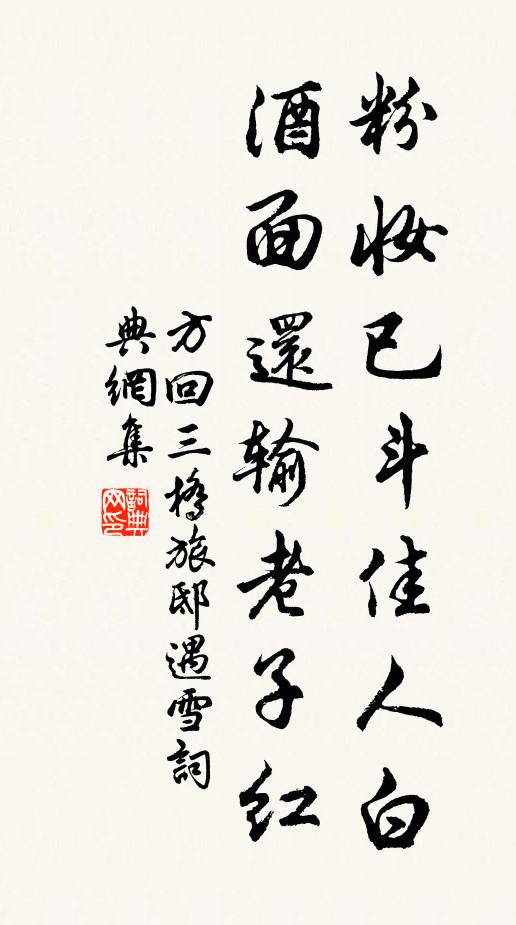 粉妆已斗佳人白
酒面還输老子红
方回三橋旅邸遇雪詞
典網集
詞典
网印